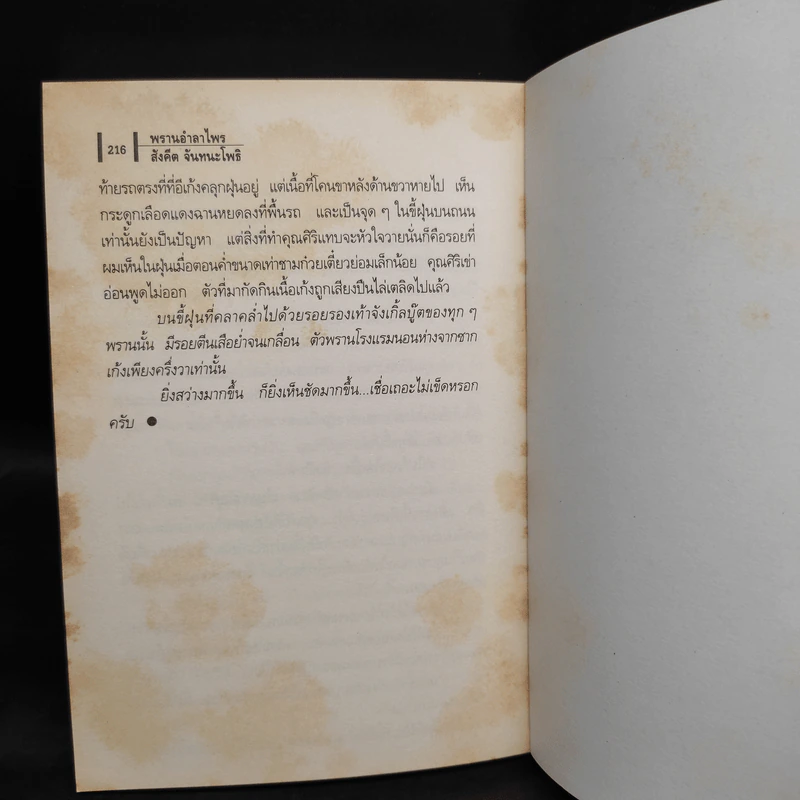 216
พรานอำลาไพร
สังคีต จันทนะโพธิ
ท้ายรถตรงที่ที่อีเก้งคลุกฝุ่นอยู่ แต่เนื้อที่โคนขาหลังด้านขวาหายไป เห็น
กระดูกเลือดแดงฉานหยดลงที่พื้นรถ และเป็นจุด ๆ ในขี้ฝุ่นบนถนน
เท่านั้นยังเป็นปัญหา แต่สิ่งที่ทำคุณศิริแทบจะหัวใจวายนั่นก็คือรอยที่
ผมเห็นในฝุ่นเมื่อตอนค่ำขนาดเท่าชามก๋วยเตี๋ยวย่อมเล็กน้อย คุณศิริเข่า
อ่อนพูดไม่ออก ตัวที่มากัดกินเนื้อเก้งถูกเสียงปืนไล่เตลิดไปแล้ว
บนขี้ฝุ่นที่คลาคล่ำไปด้วยรอยรองเท้าจังเกิ้ลบู๊ตของทุก ๆ
พรานนั้น มีรอยตีนเสือย่ำจนเกลื่อน ตัวพรานโรงแรมนอนห่างจากซาก
เก้งเพียงครึ่งวาเท่านั้น
ยิ่งสว่างมากขึ้น ก็ยิ่งเห็นชัดมากขึ้น...เชื่อเถอะไม่เข็ดหรอก
ครับ ●